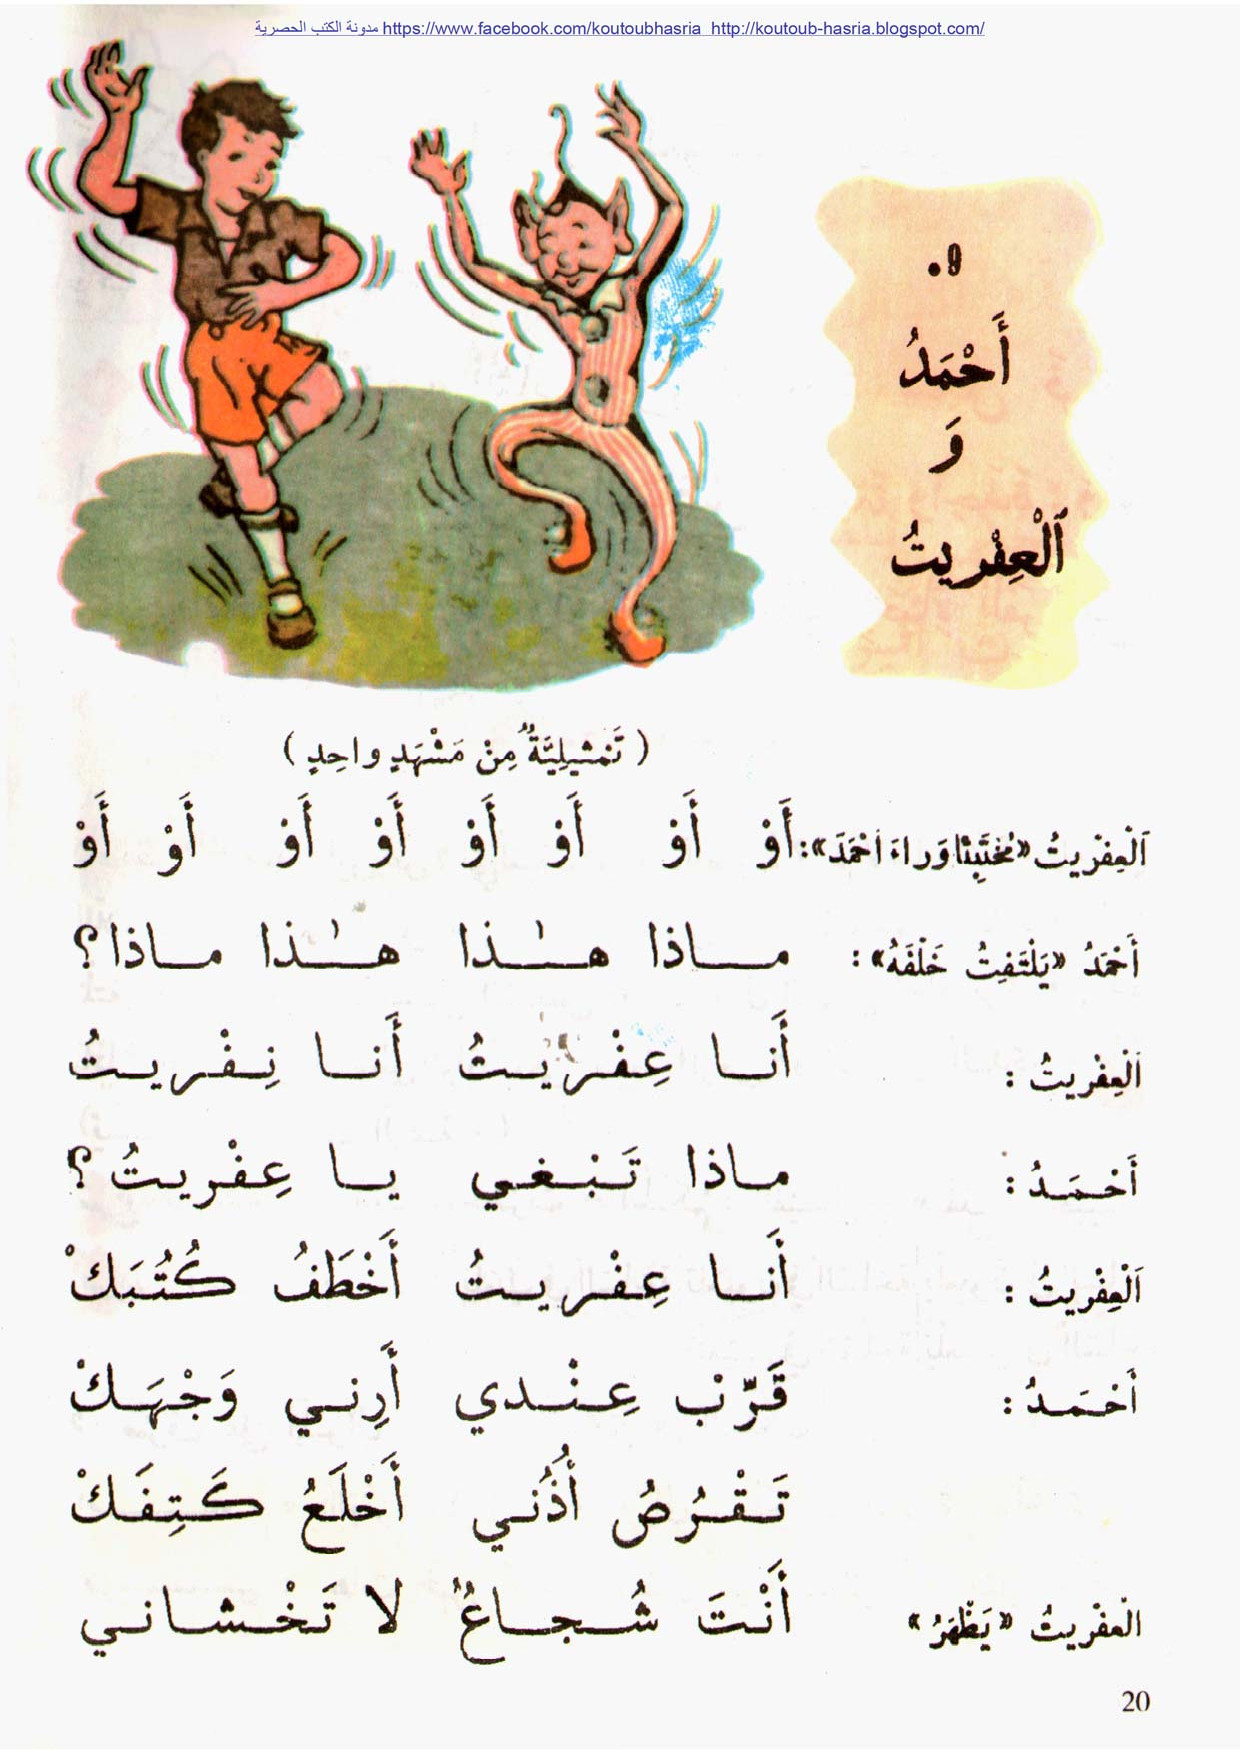 مدونة الكتب الحصرية https://www.facebook.com/koutoubhasria http://koutoub-hasria.blogspot.com/
9.
أَحْمَدُ
وَ
ٱلْعِفْرِيتُ
( تَمْثِيلِيَّةٌ مِنْ مَشْهَدٍ واحِدٍ )
اَلْعِفْرِيتُ «مُخْتَبِئا وَراءَ أحْمَدَ»: أَوْ أَوْ أَوْ أَوْ أَوْ أَوْ أَوْ أَوْ
أَحْمَدُ «يَلْتَفِتُ خَلْفَهُ»: مـاذا هـٰذا هـٰذا مـاذا؟
اَلْعِفْرِيتُ : أَنـا عِفْريـتُ أَنـا نِـفْريـتُ
أَحْـمَـدُ : مـاذا تَـبْـغـي يـا عِـفْريتُ ؟
اَلْعِفْرِيتُ : أَنـا عِفْريـتُ أَخْطَفُ كُتُبَكْ
أَحْـمَـدُ: قَرِّبْ عِـنْـدي أَرِنـي وَجْـهَـكْ
تَـقْـرُصُ أُذُنـي أَخْلَعُ كَـتِـفَـكْ
العفْريتُ «يَظْهَرُ» أَنْتَ شُـجـاعٌ لا تَـخْـشـانـي
20